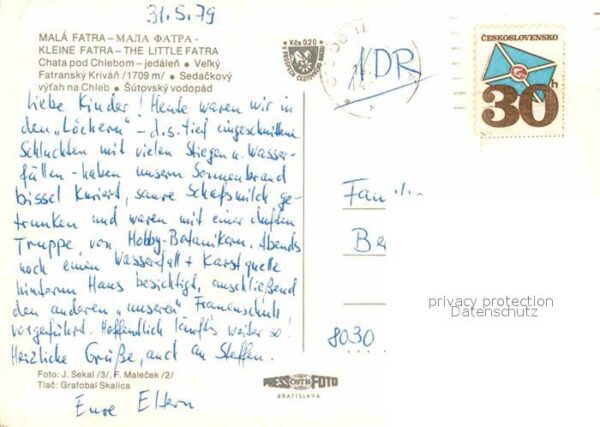 31.5.79
MALÁ FATRA – МАЛА ФАТРА -
KLEINE FATRA – THE LITTLE FATRA
Chata pod Chlebom – jedáleň • Veľký
Fatranský Kriváň /1709 m/ • Sedačkový
výťah na Chleb • Šútovský vodopád
Kčs 0,20
NDR
ČESKOSLOVENSKO
30h
Liebe Kinder! Heute waren wir in
den „Löchern" – d.s. tief eingeschnittene
Schluchten mit vielen Stiegen u. Wasser-
fällen - haben unsern Sonnenbrand
bissel kuriert, saure Schafsmilch ge-
trunken und waren mit einer duften
Truppe von Hobby-Botanikern. Abends
noch einen Wasserfall + Karstquelle
hinterm Haus besichtigt, anschließend
den anderen „unseren" Frauenschuh
vorgeführt. Hoffentlich läuft's weiter so!
Herzliche Grüße, auch an Steffen.
Eure Eltern
Fam
Be
8030
privacy protection
Datenschutz
Foto: J. Sekal /3/, F. Maleček /2/
Tlač: Grafobal Skalica
PRESS ČSTK FOTO
BRATISLAVA